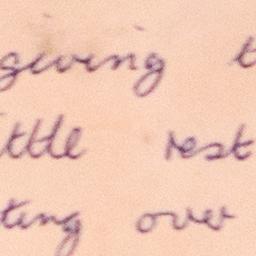 giving t
ittle rest
ting over